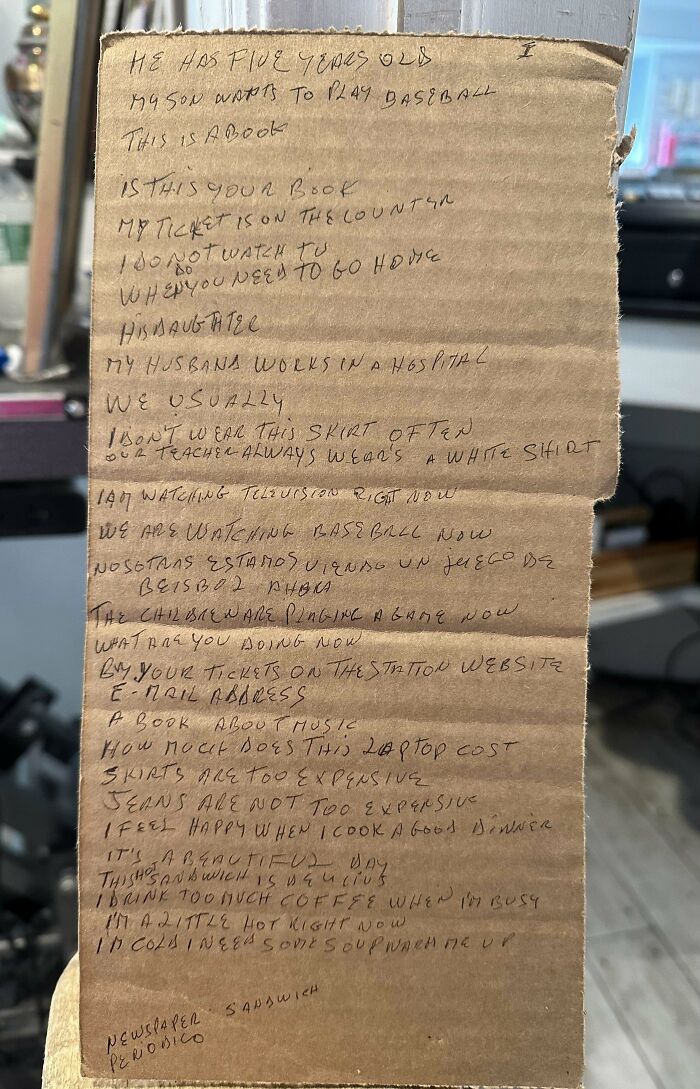 I
HE HAS FIVE YEARS OLD
MY SON WANTS TO PLAY BASEBALL
THIS IS A BOOK
IS THIS YOUR BOOK
MY TICKET IS ON THE COUNTER
I DO NOT WATCH TV
WHEN DO YOU NEED TO GO HOME
HIS DAUGHTER
MY HUSBAND WORKS IN A HOSPITAL
WE USUALLY
I DON'T WEAR THIS SKIRT OFTEN
OUR TEACHER ALWAYS WEAR'S A WHITE SHIRT
I AM WATCHING TELEVISION RIGHT NOW
WE ARE WATCHING BASEBALL NOW
NOSOTRAS ESTAMOS VIENDO UN JUEGO DE
BEISBOL AHORA
THE CHILDREN ARE PLAYING A GAME NOW
WHAT ARE YOU DOING NOW
BUY YOUR TICKETS ON THE STATION WEBSITE
E-MAIL ADDRESS
A BOOK ABOUT MUSIC
HOW MUCH DOES THIS LAPTOP COST
SKIRTS ARE TOO EXPENSIVE
JEANS ARE NOT TOO EXPENSIVE
I FEEL HAPPY WHEN I COOK A GOOD DINNER
IT'S A BEAUTIFUL DAY
THIS HOT SANDWICH IS DELICIUS
I DRINK TOO MUCH COFFEE WHEN I'M BUSY
I'M A LITTLE HOT RIGHT NOW
I'M COLD I NEED SOME SOUP WARM ME UP
SANDWICH
NEWSPAPER
PERIODICO